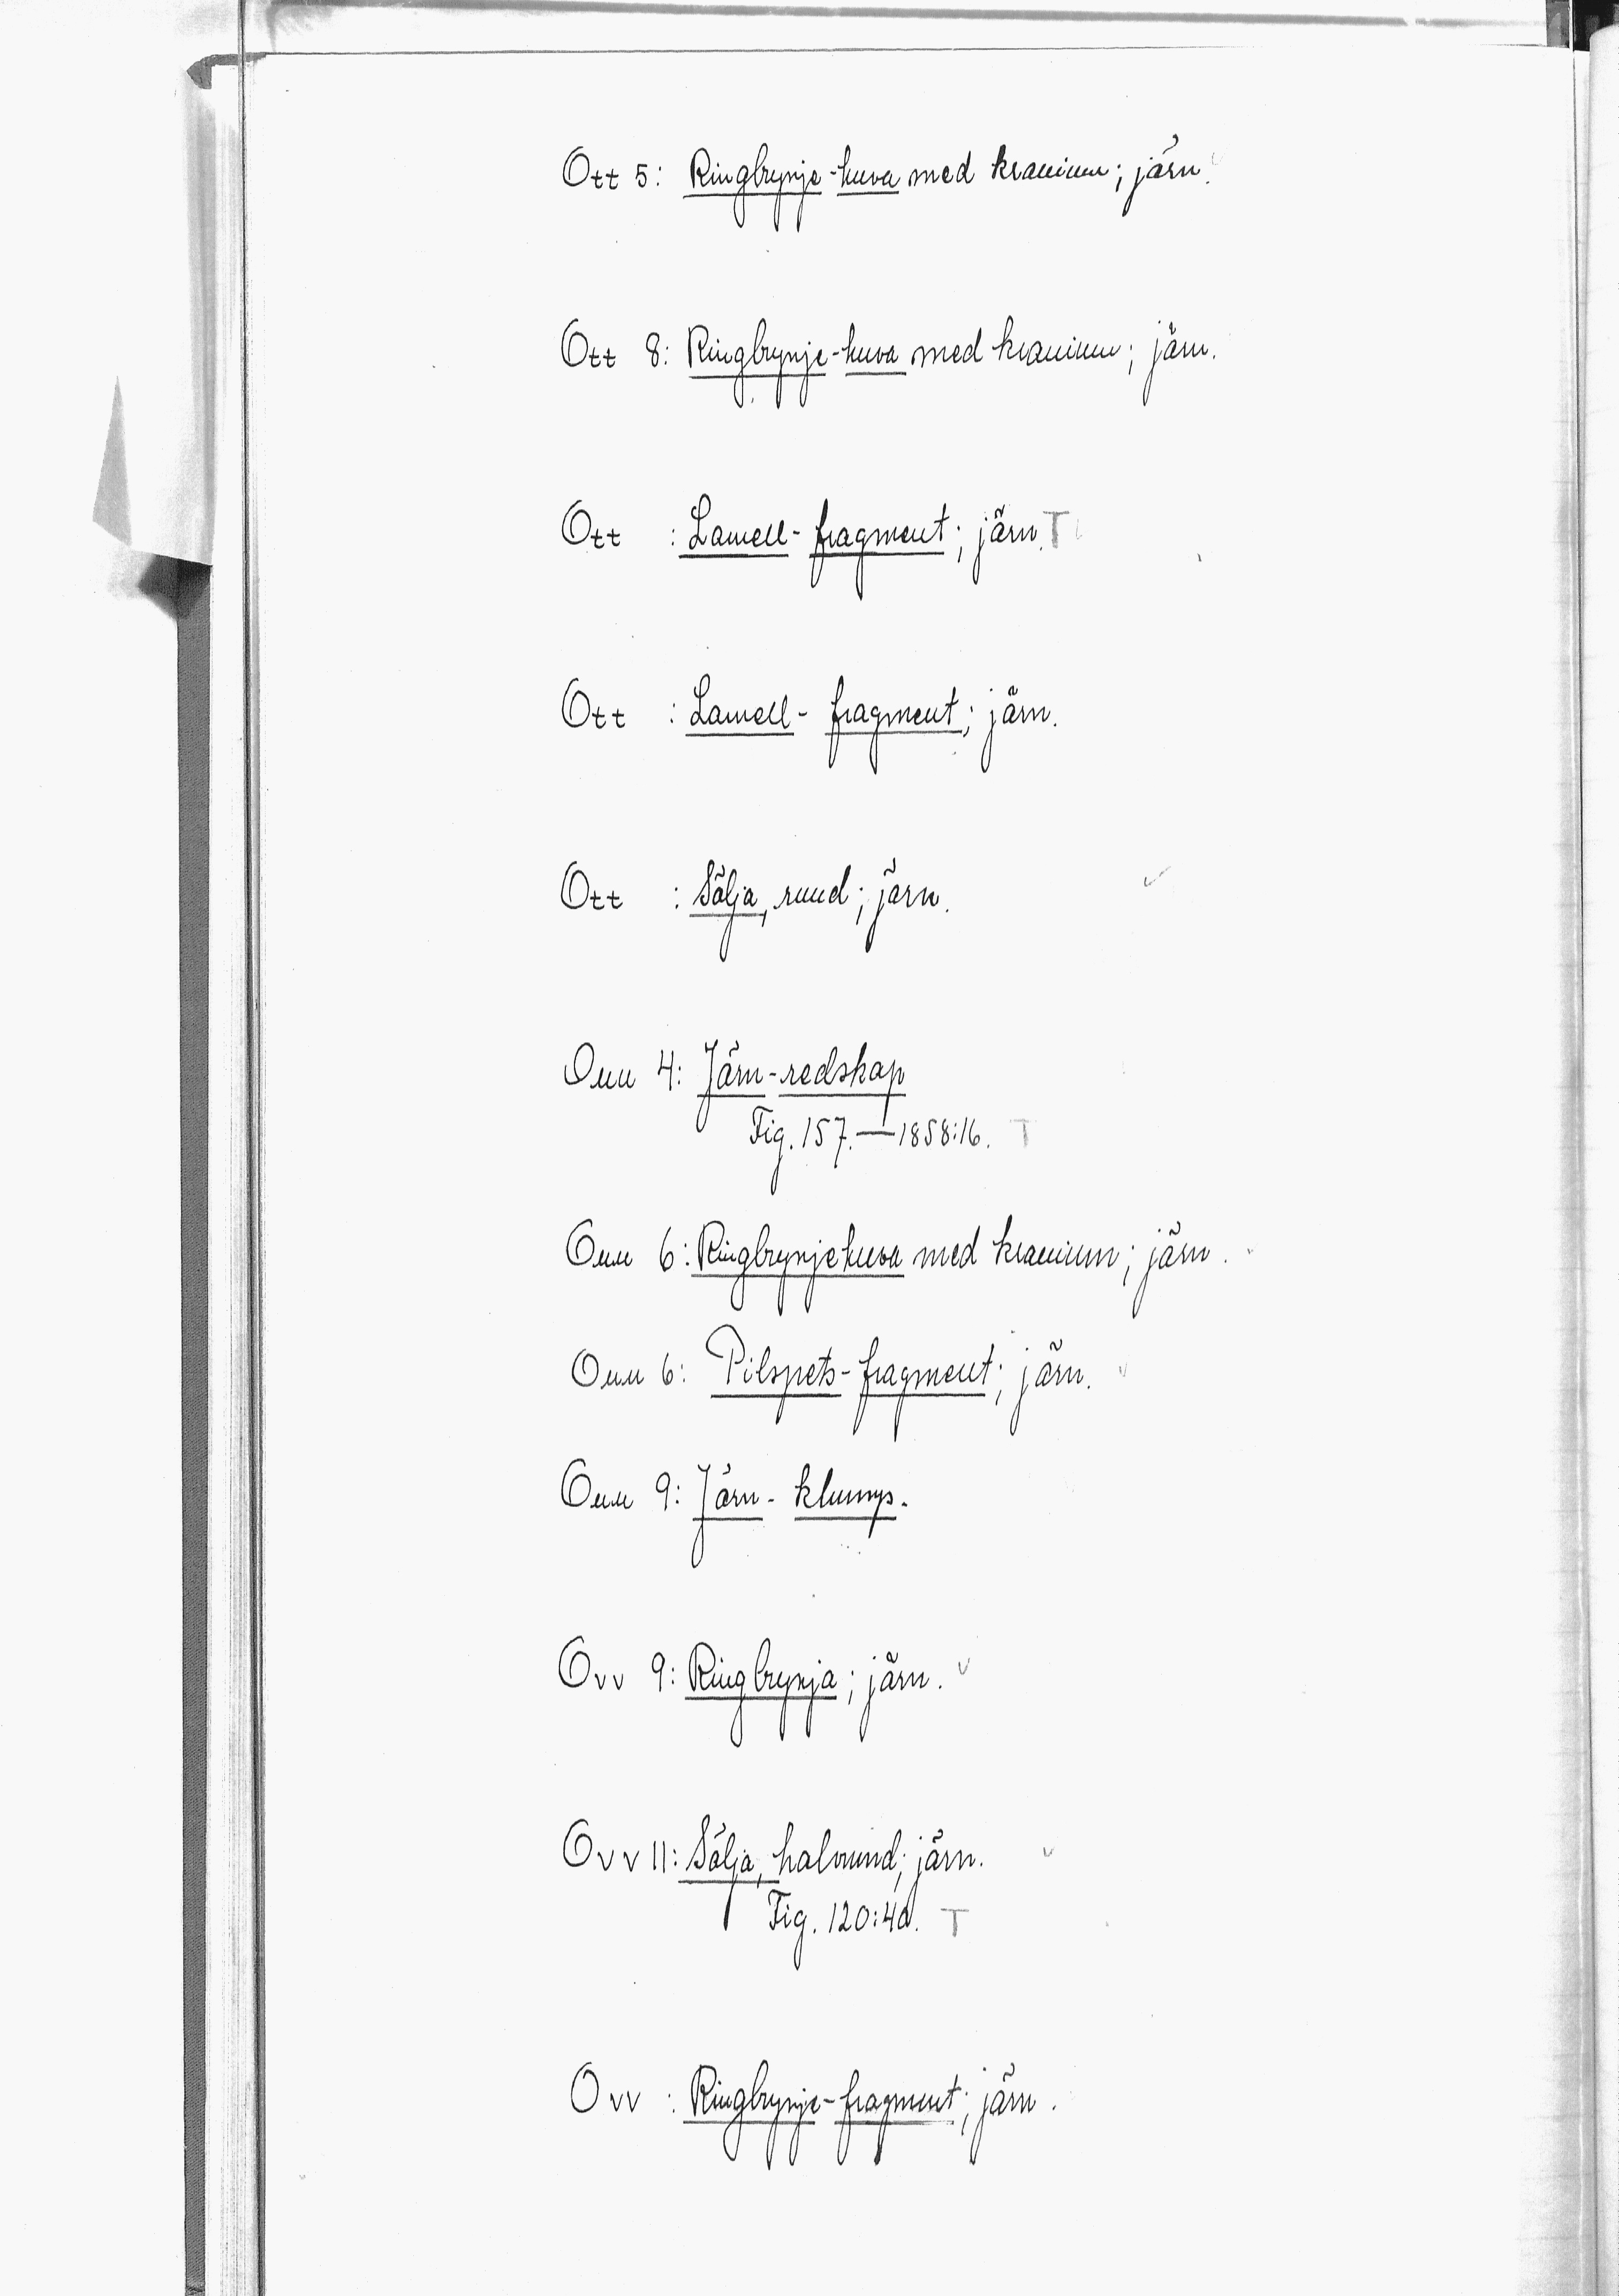 Ott 5: Ringbrynje-huva med kranium; järn.
Ott 8: Ringbrynje-huva med kranium; järn.
Ott : Lamell-fragment; järn. T
Ott : Lamell-fragment; järn.
Ott : Sölja, rund; järn. ✓
Ouu 4: Järn-redskap
Fig. 157.—1858:16. T
Ouu 6: Ringbrynjehuva med kranium; järn. ✓
Ouu 6: Pilspets-fragment; järn. ✓
Ouu 9: Järn-klump.
Ovv 9: Ringbrynja; järn. ✓
Ovv 11: Sölja, halvrund; järn. ✓
Fig. 120:40. T
Ovv : Ringbrynje-fragment; järn.